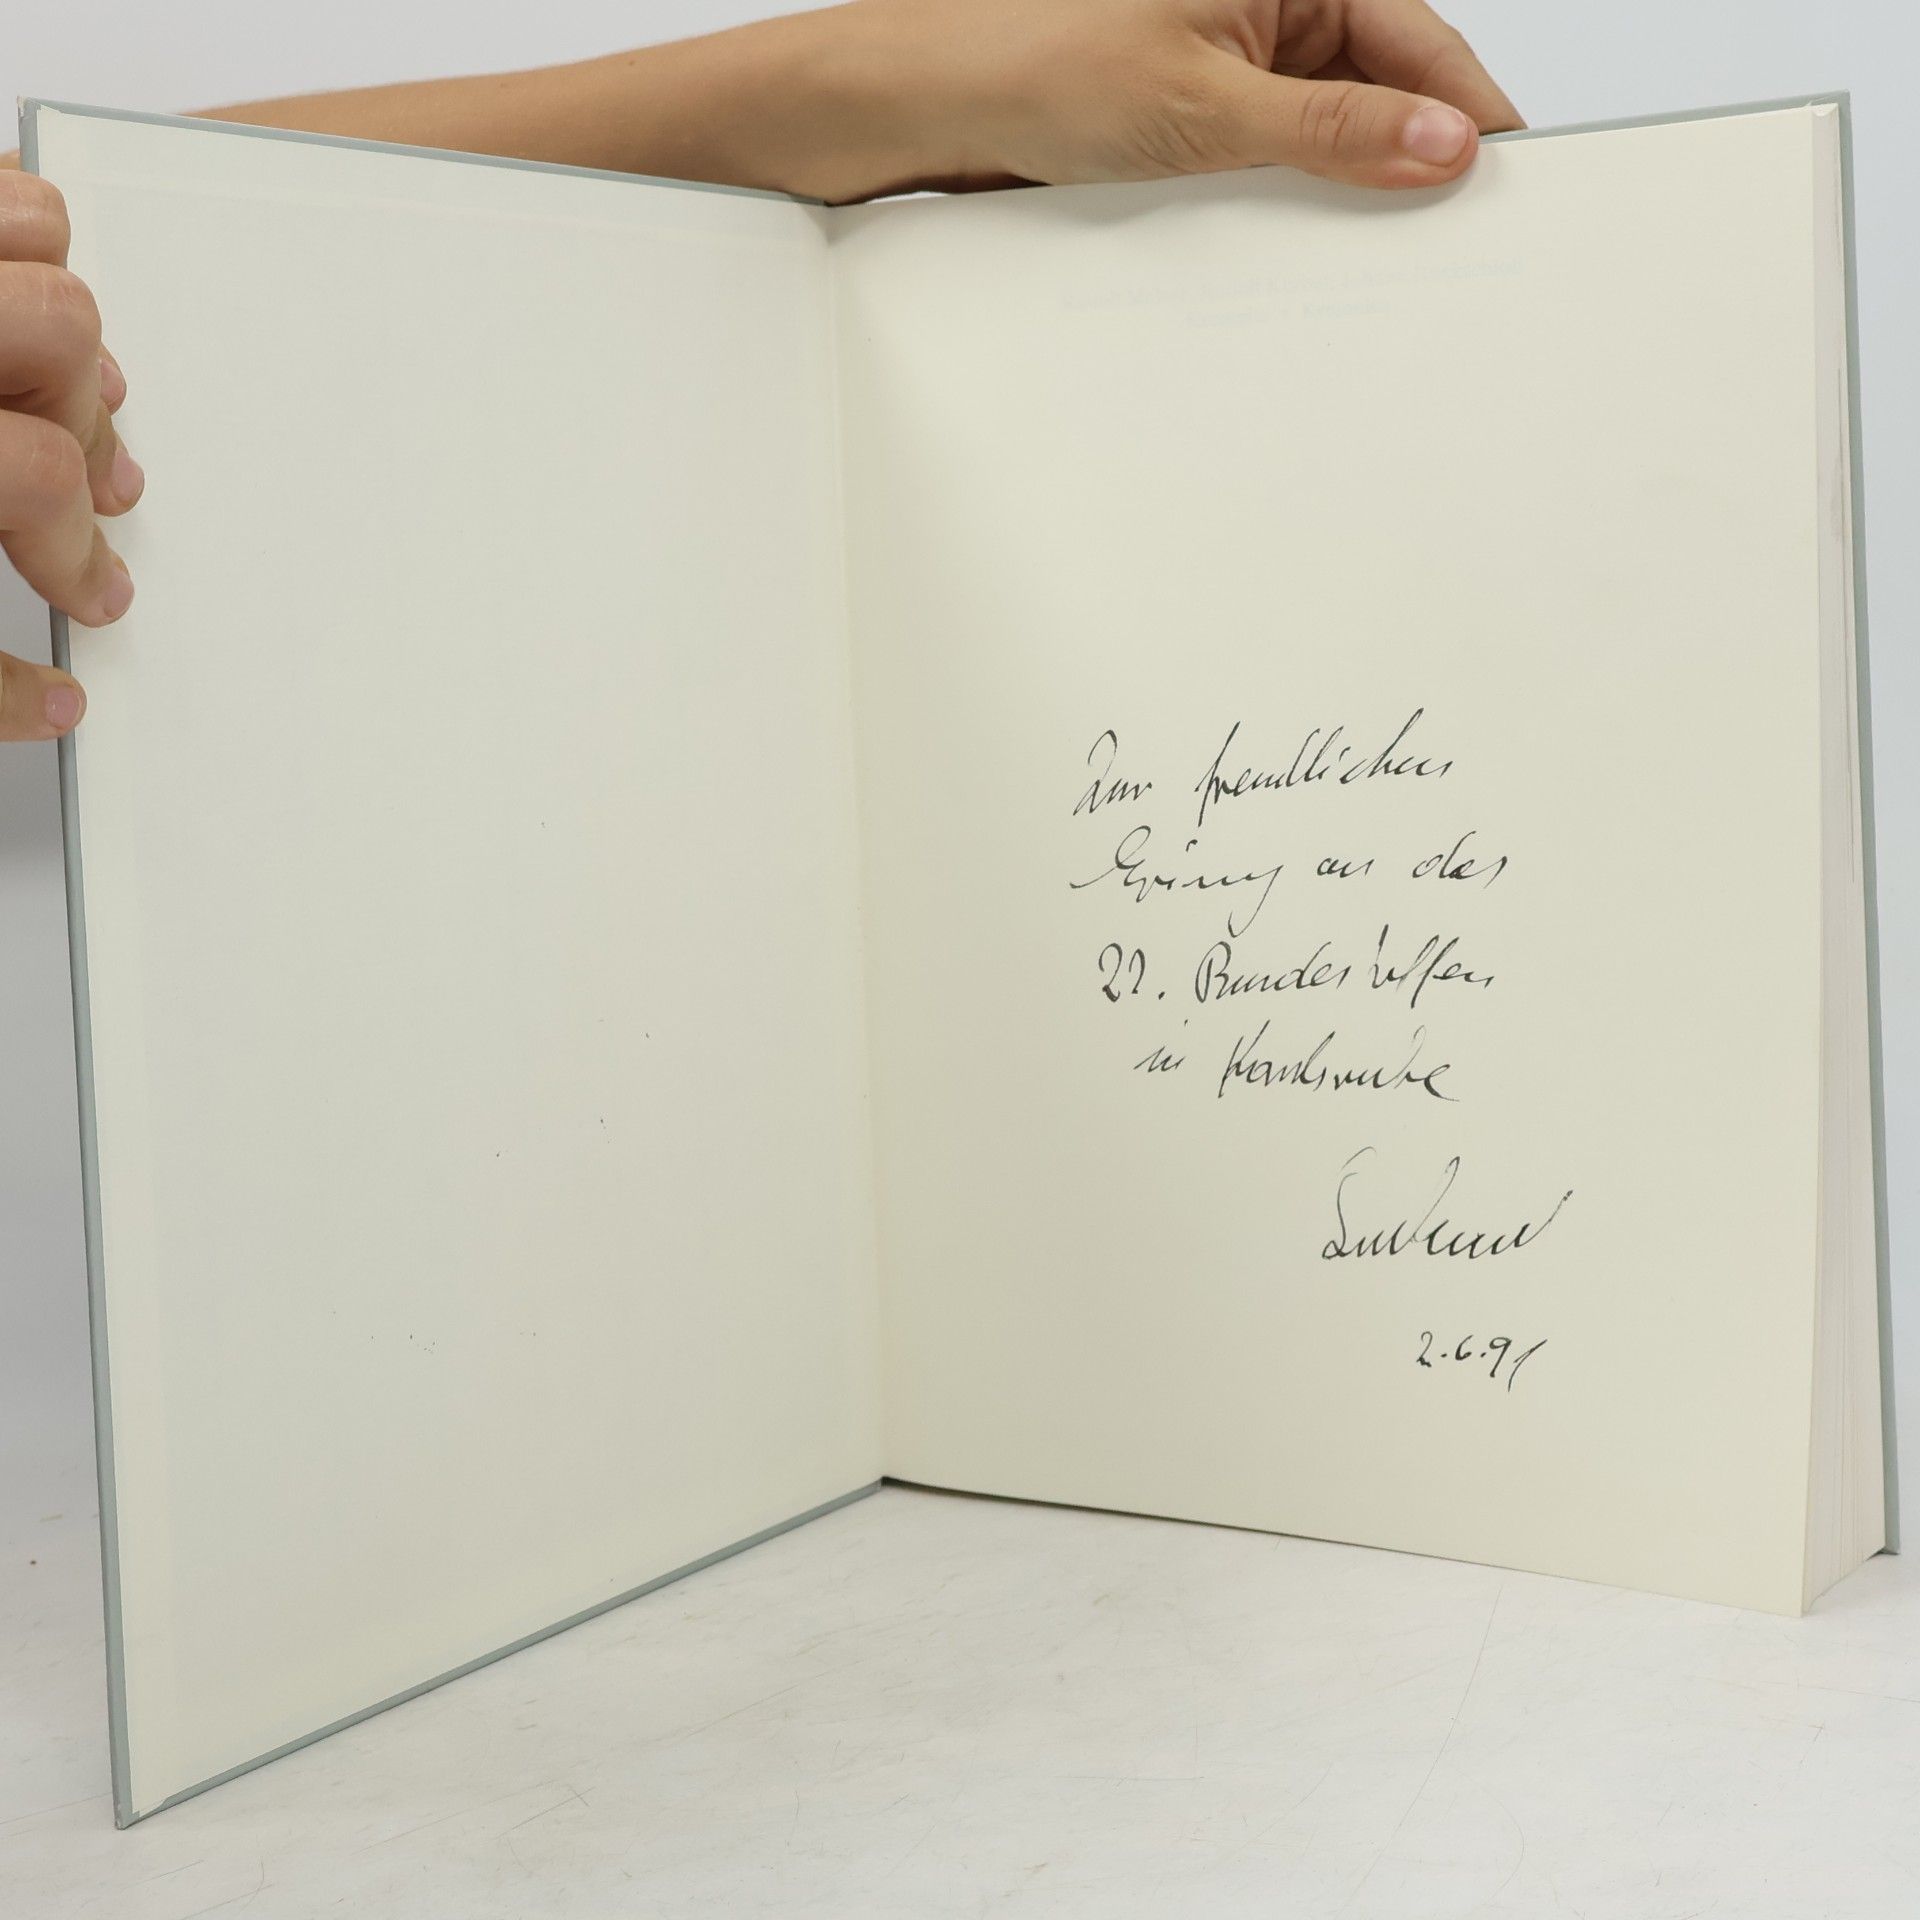 Zur freundlichen
Erinnerung an das
22. Bundestreffen
in Karlsruhe
2.6.91